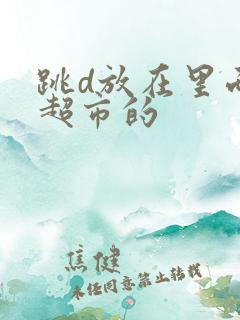 跳d放在里面
超市的
焦健
未任同意禁止转载